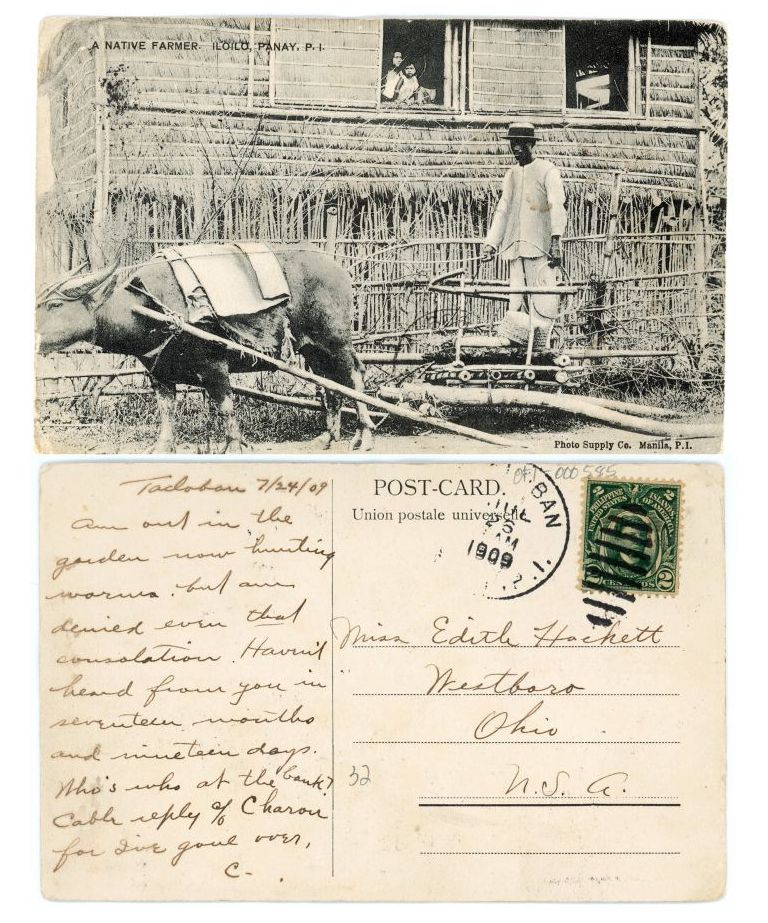 A NATIVE FARMER. ILOILO, PANAY, P. I.
Photo Supply Co. Manila, P.I.
OFI-000585
Tacloban 7/24/09
Am out in the
garden now hunting
worms. but am
denied even that
consolation. Havn't
heard from you in
seventeen months
and nineteen days.
Who's who at the bank?
Cable reply c/o Charon
for I've gone over,
C-.
POST-CARD.
Union postale universelle
BAN
JUL
26
AM
1909
P. I.
PHILIPPINE ISLANDS
UNITED STATES OF AMERICA
2 CENTAVOS 2
Miss Edith Hackett
Westboro
Ohio
U. S. A.
32